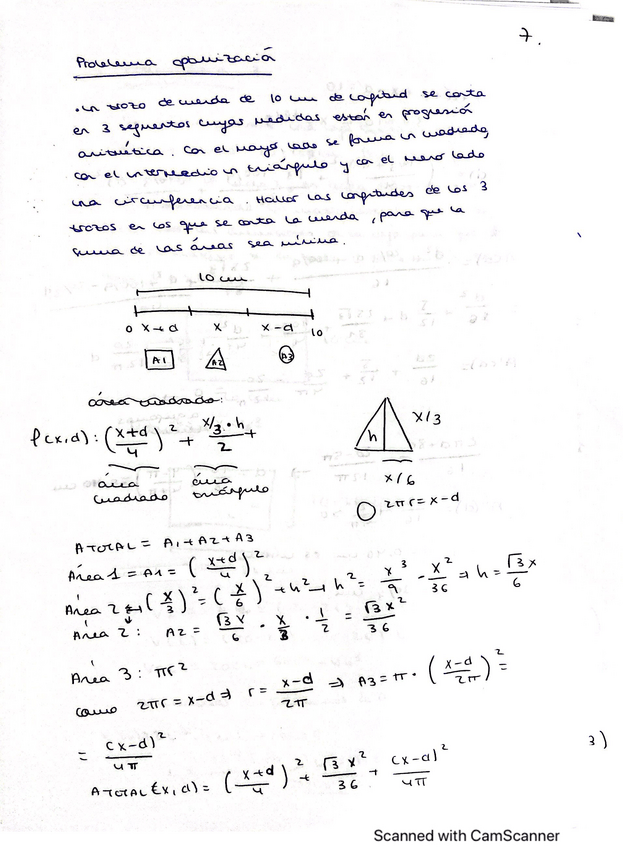 7.
Problema optimización
• Un trozo de cuerda de 10 cm de longitud se corta
en 3 segmentos cuyas medidas están en progresión
aritmética. Con el mayor lado se forma un cuadrado,
con el intermedio un triángulo y con el menor lado
una circunferencia. Hallar las longitudes de los 3
trozos en los que se corta la cuerda, para que la
suma de las áreas sea mínima.
10 cm
0 x+d x x-d 10
A1 A2 A3
área cuadrado:
f(x,d): (x+d/4)² + x/3·h/2 +
área cuadrado
área triángulo
h x/3
x/6
2πr = x-d
ATOTAL = A1 + A2 + A3
Área 1 = A1 = (x+d/4)²
Área 2 ↔ (x/3)² = (x/6)² + h² → h² = x³/9 - x²/36 ⇒ h = √3x/6
Área 2: A2 = √3x/6 · x/3 · 1/2 = √3x²/36
Área 3: πr²
como 2πr = x-d ⇒ r = x-d/2π ⇒ A3 = π · (x-d/2π)² =
= (x-d)²/4π
3)
ATOTAL(x,d) = (x+d/4)² + √3x²/36 + (x-d)²/4π
Scanned with CamScanner